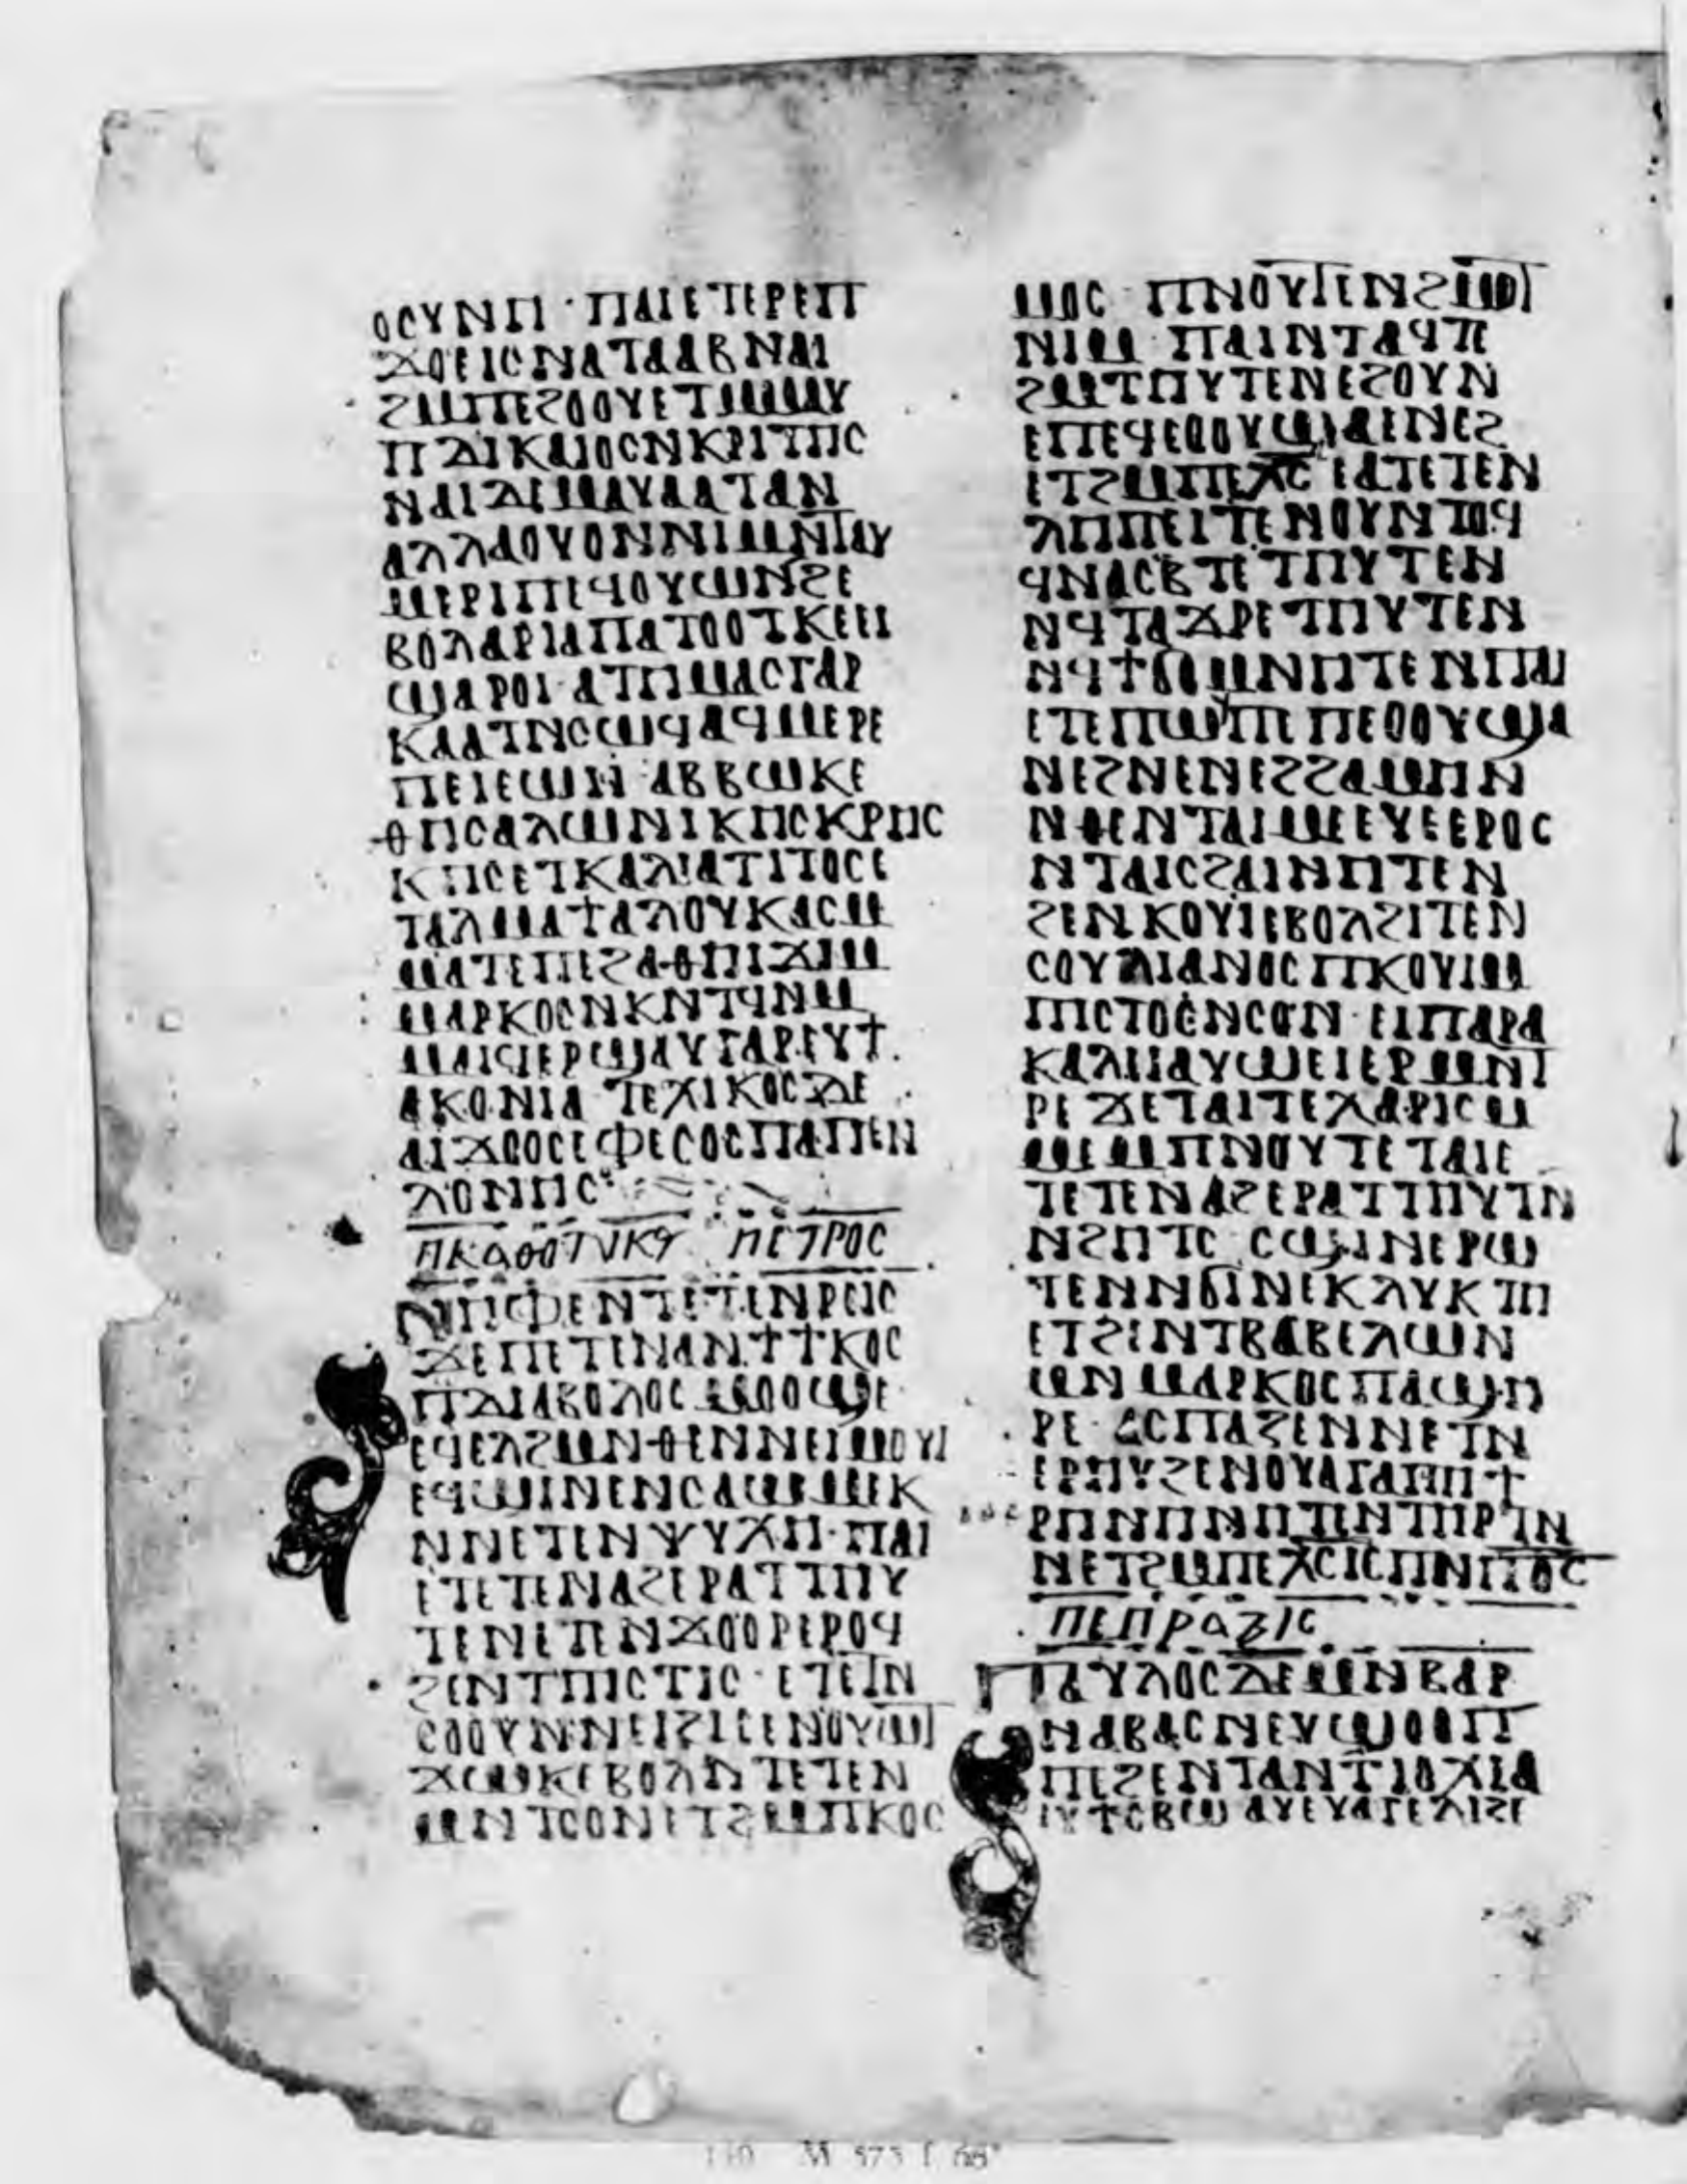 ⲟⲥⲩⲛⲏ · ⲡⲁⲓⲉⲧⲉⲣⲉⲡ
ϫⲟⲉⲓⲥⲛⲁⲧⲁⲁⲃⲛⲁⲓ
ϩⲙⲡⲉϩⲟⲟⲩⲉⲧⲙⲙⲩ
ⲡⲇⲓⲕⲁⲓⲟⲥⲛⲕⲣⲓⲧⲏⲥ
ⲛⲁⲓⲇⲉⲙⲁⲩⲁⲁⲧⲁⲛ
ⲁⲗⲗⲁⲟⲩⲟⲛⲛⲓⲙⲛⲧⲁⲩ
ⲙⲉⲣⲓⲡⲉϥⲟⲩⲱⲛϩⲉ
ⲃⲟⲗⲁⲣⲓⲁⲡⲁⲧⲟⲟⲧⲕⲉⲉⲓ
ϣⲁⲣⲟⲓ ⲁⲧⲏⲙⲁⲥⲅⲁⲣ
ⲕⲁⲁⲧⲛⲥⲱϥⲁϥⲙⲉⲣⲉ
ⲡⲉⲓⲉⲱⲛ ⲁⲃⲃⲱⲕⲉ
ⲑⲏⲥⲁⲗⲱⲛⲓⲕⲏⲥⲕⲣⲏⲥ
ⲕⲏⲥⲉⲧⲕⲁⲗⲓⲁⲧⲓⲧⲟⲥⲉ
ⲧⲁⲗⲙⲁϯⲁⲗⲟⲩⲕⲁⲥⲙ
ⲙⲁⲧⲉⲡⲉϩⲁⲑⲏⲓϫⲓⲙ
ⲙⲁⲣⲕⲟⲥⲛⲕⲛⲧϥⲛⲙ
ⲙⲁⲓϥⲉⲣϣⲁⲩⲅⲁⲣⲉⲩϯ
ⲁⲕⲟⲛⲓⲁ ⲧⲉⲭⲓⲕⲟⲥⲇⲉ
ⲁⲓϫⲟⲟⲥⲉⲫⲉⲥⲟⲥⲡⲁⲡⲉⲛ
ⲗⲟⲛⲏⲥ
ⲡⲕⲁⲑⲟⲧⲩⲕⲟⲛ ⲡⲉⲧⲣⲟⲥ
ⲛⲏⲫⲉⲛⲧⲉⲧⲉⲛⲣⲉⲓⲥ
ϫⲉⲡⲉⲧⲉⲛⲁⲛϯϯⲕⲟⲥ
ⲡⲇⲓⲁⲃⲟⲗⲟⲥ ⲙⲟⲟϣⲉ
ⲉϥⲉⲗϩⲙⲛⲑⲉⲛⲛⲉⲓⲙⲟⲩⲓ
ⲉϥϣⲓⲛⲉⲛⲥⲁⲱⲙⲉⲕ
ⲛⲛⲉⲧⲉⲛⲯⲩⲭⲏ · ⲡⲁⲓ
ⲉⲧⲉⲧⲉⲛⲁϩⲉⲣⲁⲧⲧⲏⲩ
ⲧⲉⲛⲉⲧⲉⲛϫⲟⲟⲣⲉⲣⲟϥ
ϩⲉⲛⲧⲡⲓⲥⲧⲓⲥ · ⲉⲧⲉⲧⲛ
ⲥⲟⲟⲩⲛⲛⲉⲓϩⲓⲥⲉⲛⲟⲩⲱⲧ
ϫⲱⲕⲉⲃⲟⲗⲛⲧⲉⲧⲉⲛ
ⲙⲛⲧⲥⲟⲛⲉⲧϩⲙⲡⲕⲟⲥ
ⲙⲟⲥ ⲡⲛⲟⲩⲧⲉⲛϩⲙⲟⲧ
ⲛⲓⲙ ⲡⲁⲓⲛⲧⲁϥⲧⲉ
ϩⲙⲧⲏⲩⲧⲉⲛⲉϩⲟⲩⲛ
ⲉⲡⲉϥⲉⲟⲟⲩϣⲁⲉⲛⲉϩ
ⲉⲧϩⲙⲡⲉⲭⲥ ⲉⲁⲧⲉⲧⲉⲛ
ⲗⲡⲡⲉⲓⲧⲉⲛⲟⲩⲛⲧⲟϥ
ϥⲛⲁⲥⲃⲧⲉⲧⲏⲩⲧⲉⲛ
ⲛϥⲧⲁϫⲣⲉⲧⲏⲩⲧⲉⲛ
ⲛϥϯϭⲙⲛⲏⲧⲉⲛⲡⲁⲓ
ⲉⲧⲉⲡⲱϥⲡⲉ ⲡⲉⲟⲟⲩϣⲁ
ⲛⲉϩⲛⲉⲛⲉϩϩⲁⲙⲏⲛ
ⲛⲑⲉⲛⲧⲁⲓⲙⲉⲉⲩⲉⲉⲣⲟⲥ
ⲛⲧⲁⲓⲥϩⲁⲓⲛⲏⲧⲉⲛ
ϩⲉⲛⲕⲟⲩⲓⲉⲃⲟⲗϩⲓⲧⲉⲛ
ⲥⲟⲩⲗⲓⲁⲛⲟⲥ ⲡⲕⲟⲩⲓⲙ
ⲡⲓⲥⲧⲟⲥⲛⲥⲟⲛ · ⲉⲓⲡⲁⲣⲁ
ⲕⲁⲗⲓⲁⲩⲱⲉⲓⲉⲣⲙⲛⲧ
ⲣⲉ ϫⲉⲧⲁⲓⲧⲉⲭⲁⲣⲓⲥⲙ
ⲙⲉⲙⲡⲛⲟⲩⲧⲉ ⲧⲁⲓⲉ
ⲧⲉⲧⲉⲛⲁϩⲉⲣⲁⲧⲧⲏⲩⲧⲛ
ⲛϩⲏⲧⲥ ⲥϣⲓⲛⲉⲣⲱ
ⲧⲉⲛⲛϭⲓⲛⲉⲕⲗⲩⲕⲧⲏ
ⲉⲧϩⲉⲛⲧⲃⲁⲃⲉⲗⲱⲛ
ⲙⲛ ⲙⲁⲣⲕⲟⲥⲡⲁϣⲏ
ⲣⲉ · ⲁⲥⲡⲁϩⲉⲛⲛⲉⲧⲛ
ⲉⲣⲏⲩϩⲉⲛⲟⲩⲁⲅⲁⲡⲏ ϯ
ⲣⲏⲛⲏⲛⲏⲧⲉⲛⲧⲏⲣⲧⲛ
ⲛⲉⲧϩⲙⲡⲉⲭⲥⲓⲥⲡⲛⲡⲟⲥ
ⲡⲉⲡⲣⲁⲝⲓⲥ
ⲡⲁⲩⲗⲟⲥⲇⲉⲙⲛⲃⲁⲣ
ⲛⲁⲃⲁⲥⲛⲉⲩϣⲟⲟⲡ
ⲡⲉϩⲉⲛⲧⲁⲛⲧⲓⲟⲭⲓⲁ
ⲉⲩϯⲥⲃⲱ ⲁⲩⲉⲩⲁⲅⲉⲗⲓⲍⲉ